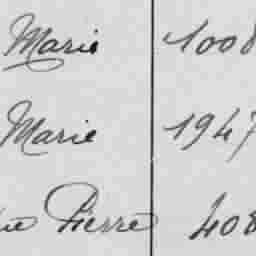 Marie 1008
Marie 1947
Pierre 408